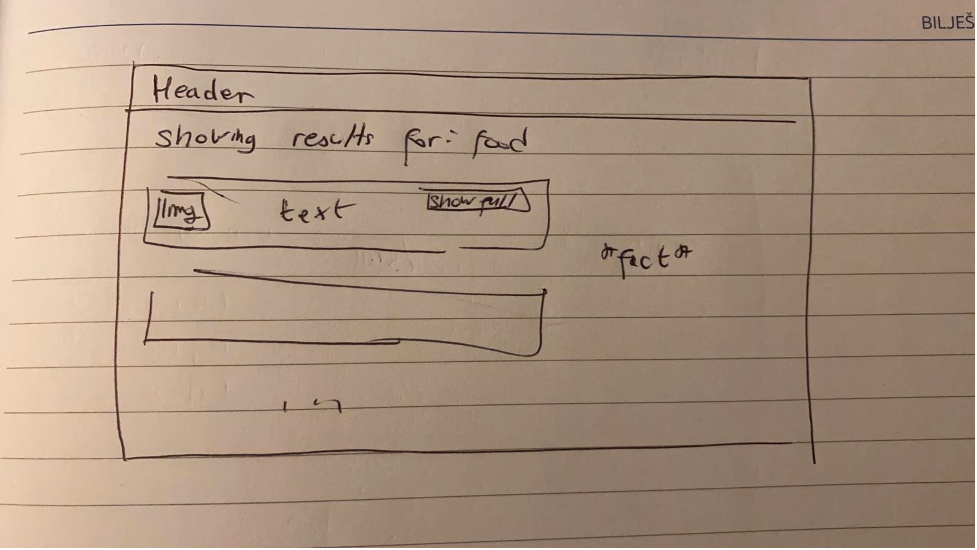 BILJEŠ
Header
showing results for: food
Img text show full
*fact*